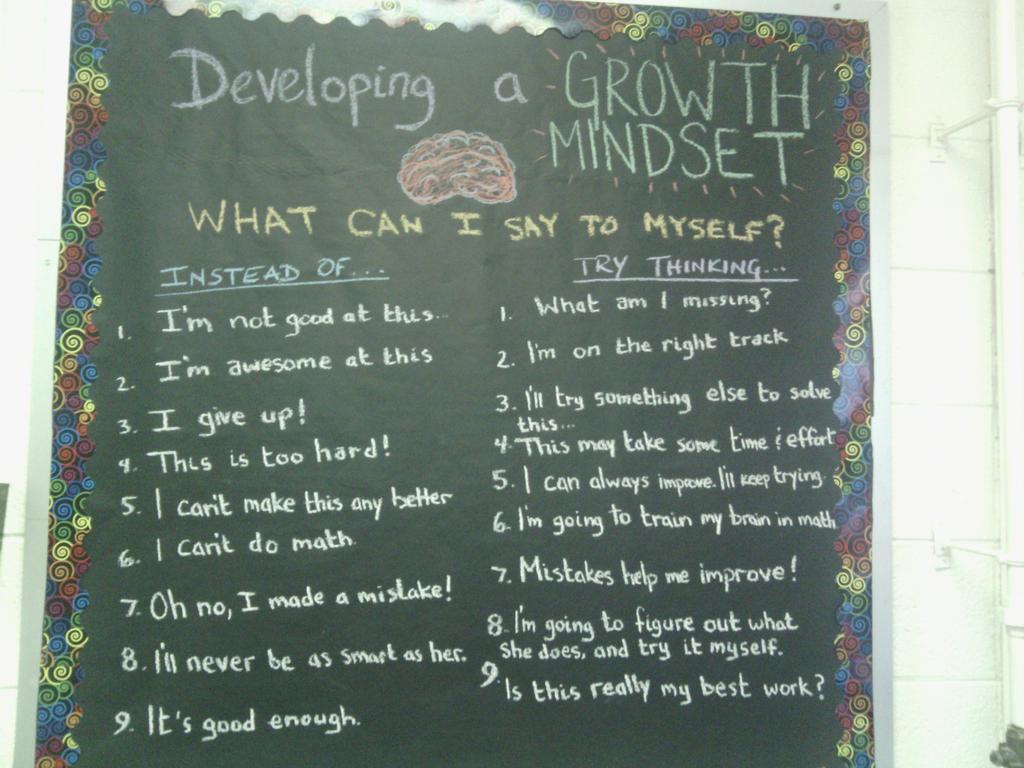 Developing a GROWTH
MINDSET
WHAT CAN I SAY TO MYSELF?
INSTEAD OF...
1. I'm not good at this...
2. I'm awesome at this
3. I give up!
4. This is too hard!
5. I can't make this any better
6. I can't do math.
7. Oh no, I made a mistake!
8. I'll never be as smart as her.
9. It's good enough.
TRY THINKING...
1. What am I missing?
2. I'm on the right track
3. I'll try something else to solve
this...
4. This may take some time & effort
5. I can always improve. I'll keep trying.
6. I'm going to train my brain in math
7. Mistakes help me improve!
8. I'm going to figure out what
she does, and try it myself.
9. Is this really my best work?